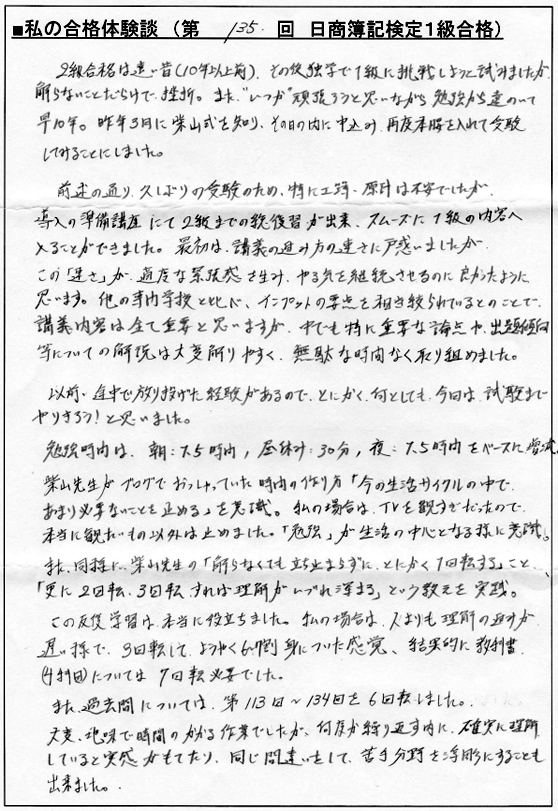 ■私の合格体験談（第 135. 回 日商簿記検定1級合格）
2級合格は遠い昔(10年以上前)、その後独学で1級に挑戦しようと試みましたが、
解らないことだらけで、挫折。また、"いつか"頑張ろうと思いながら勉強から遠のいて
早10年。昨年3月に柴山式を知り、その日の内に申込み、再度本腰を入れて受験
してみることにしました。
前述の通り、久しぶりの受験のため、特に工簿・原計は不安でしたが、
導入の準備講座にて2級までの総復習が出来、スムーズに1級の内容へ
入ることができました。最初は、講義の進み方の速さに戸惑いましたが
この「速さ」が、適度な緊張感を生み、やる気を継続させるのに良かったように
思います。他の専門学校と比べ、インプットの要点を相当絞られているとのことで、
講義内容は全て重要と思いますが、中でも特に重要な論点や、出題傾向
等についての解説は大変解りやすく、無駄な時間なく取り組めました。
以前、途中で放り投げた経験があるので、とにかく、何としても、今回は、試験まで
やりきろう！と思いました。
勉強時間は、朝：1.5時間，昼休み：30分，夜：1.5時間をベースに
柴山先生がブログでおっしゃっていた時間の作り方「今の生活サイクルの中で、
あまり必要ないことを止める」を意識。私の場合は、TVを観すぎだったので、
本当に観たいもの以外は止めました。「勉強」が生活の中心となる様に意識。
また、同様に、柴山先生の「解らなくても立ち止まらずに、とにかく1回転する」こと、
「更に2回転、3回転すれば理解がいづれ深まる」という教えを実践。
この反復学習は、本当に役立ちました。私の場合は、人よりも理解の進みが
遅い様で、3回転して、ようやく6割身についた感覚、結果的に教科書
(4冊目)については 7回転必要でした。
また、過去問については、第113回～134回を6回転しました。
大変、地味で時間のかかる作業でしたが、何度か繰り返す内に、確実に理解
していると実感がもてたり、同じ間違いをして、苦手分野を浮彫にすることも
出来ました。